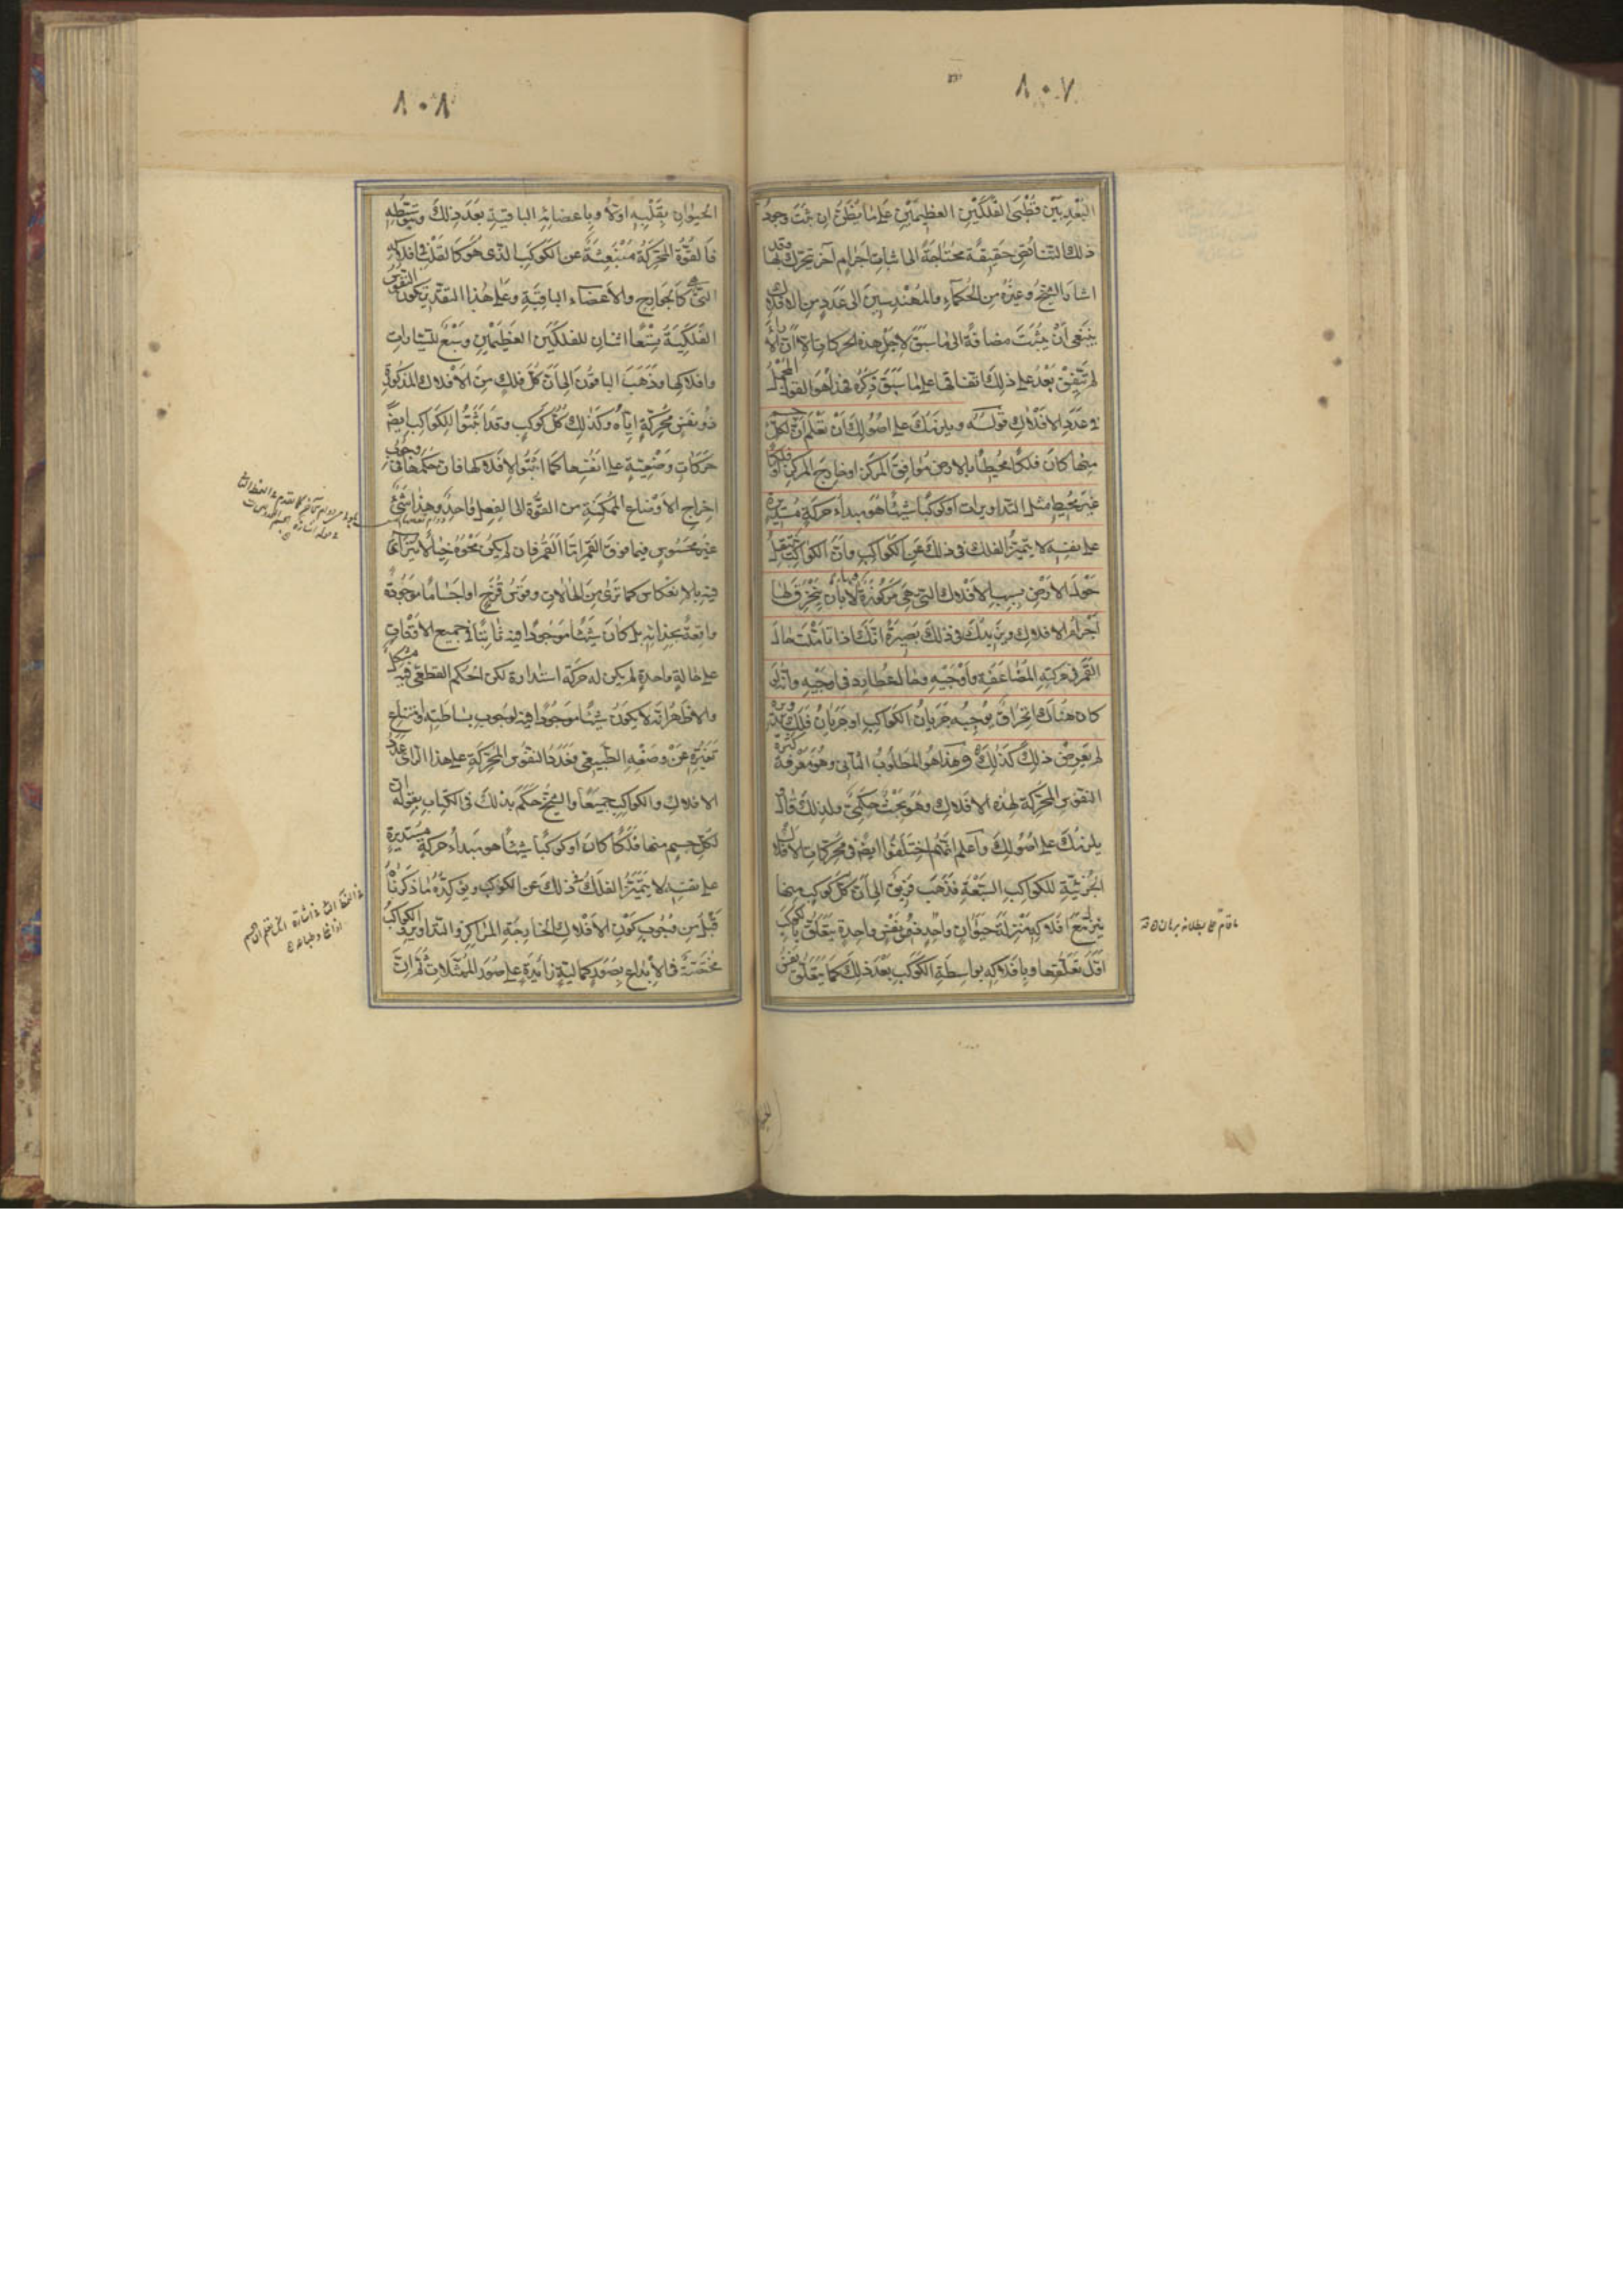 ٨٠٧
البعد بين قطبى الفلكين العظيمين على ما يظن ان ثبت وجود
ذلك التناقص حقيقة محتاجة الى اثبات اجرام آخر يتحرك بها وقد
اشار الشيخ وغيره من الحكماء والمهندسين الى عدد من الافلاك
ينبغى ان يثبت مضافة الى ما سبق لاجل هذه الحركات الا ان الآراء
لم تتفق بعد على ذلك اتفاقها على ما سبق ذكره فهذا هو القول المجمل
فى عدد الافلاك قوله ويلزمك على اصولك ان تعلم ان لكل جسم
منها كان فلكا محيطا بالارض موافق المركز او خارج المركز او فلكا
غير محيط مثل التداويرات او كوكبا شيئا هو مبداء حركة مستديرة
على نفسه لا يتميز الفلك فى ذلك عن الكواكب وان الكواكب تنتقل
حول الارض بسبب الافلاك التى هى مركوزة فيها لا بان ينخرق لها
اجرام الافلاك ويزيدك فى ذلك بصيرة انك اذا تأملت حال
القمر فى حركته المضاعفة واوجيه وحال عطارد فى اوجيه وانه لو
كان هناك انخراق يوجبه جريان الكواكب او جريان فلك تدوير
لم يعرض ذلك كذلك وهذا هو المطلوب الثانى وهو معرفة كثرة
النفوس المحركة لهذه الافلاك وهو بحث حكمى ولذلك قال
يلزمك على اصولك واعلم انهم اختلفوا ايضا فى محركات الافلاك
الجزئية للكواكب السبعة فذهب فريق الى ان كل كوكب منها
ينزل مع افلاكه منزلة حيوان واحد ذى نفس واحدة يتعلق بالكوكب
اول تعلقها وبافلاكه بواسطة الكوكب بعد ذلك كما يتعلق نفس
٨٠٨
الحيوان بقلبه اولا وباعضائه الباقية بعد ذلك وبتوسطه
فالقوة المحركة منبعثة عن الكوكب الذى هو كالقلب فى افلاكه
التى هى كالجوارح والاعضاء الباقية وعلى هذا التقدير يكون النفوس
الفلكية تسعا اثنان للفلكين العظيمين وسبع للسيارات
وافلاكها وذهب الباقون الى ان كل فلك من الافلاك المذكورة
ذو نفس محركة اياه وكذلك كل كوكب وقد اثبتوا للكواكب ايضا
حركات وضعية على انفسها كما اثبتوا لافلاكها فان حكمها فى وجوب
اخراج الاوضاع الممكنة من القوة الى الفعل واحد وهذا شئ
غير محسوس فيما فوق القمر اما القمر فان لم يكن محوه خيالا يتراآى
فيه بالانعكاس كما ترى من الهالات وقوس قزح او اجساما موجودة
واقعة بحذائه بل كان شيئا موجودا فيه ثابتا فى جميع الاوقات
على حالة واحدة لم يكن له حركة استدارة لكن الحكم القطعى فيه مشكل
والاظهر انه لا يكون شيئا موجودا فيه لوجوب بساطته وامتناع
تغيره عن وضعه الطبيعى فعدد النفوس المحركة على هذا الرأى عدد
الافلاك والكواكب جميعا والشيخ حكم بذلك فى الكتاب بقوله ان
لكل جسم منها فلكا كان او كوكبا شيئا هو مبداء حركة مستديرة
على نفسه لا يتميز الفلك فى ذلك عن الكوكب ويؤكده ما ذكرناه
قبل من وجوب كون الافلاك الخارجة المراكز والتداوير والكواكب
مختصة فى الابداع بصور كمالية زائدة على صور الممثلات ثم ان